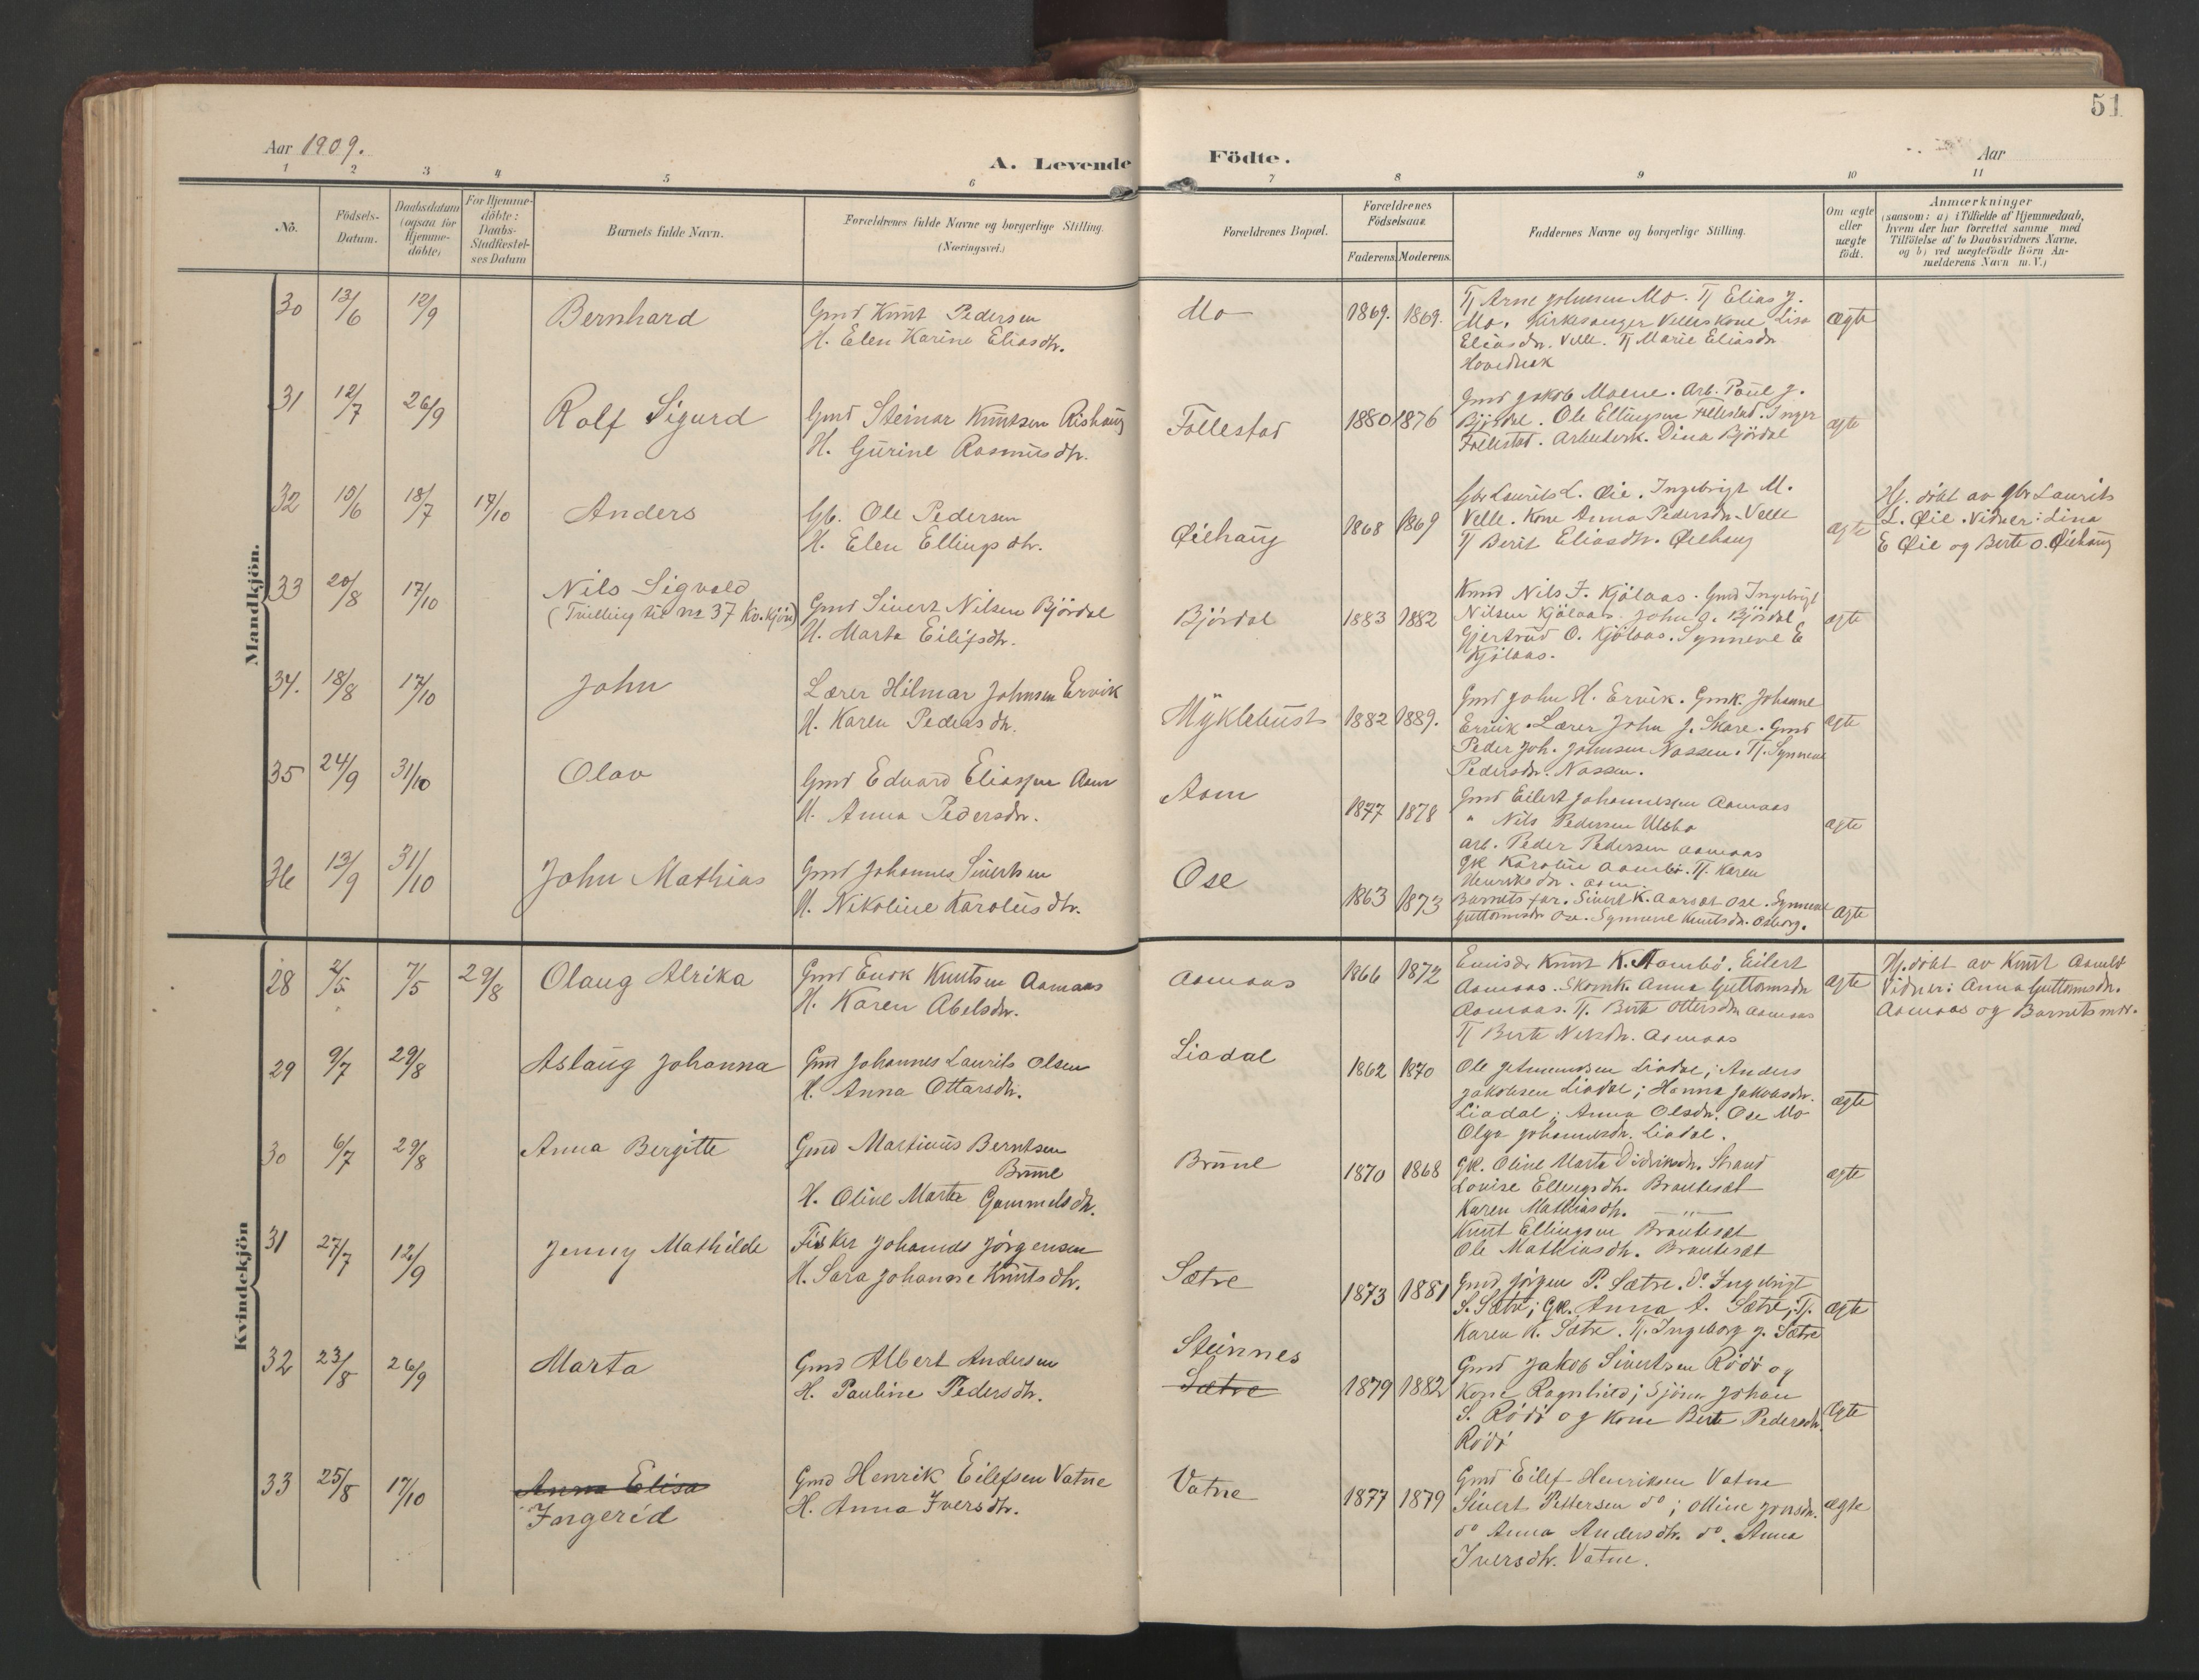 51
Aar 1909.
A. Levende Födte.
Aar
1 2 3 4 5 6 7 8 9 10 11
No.
Födsels-Datum.
Daabsdatum (ogsaa for Hjemmedöbte)
For Hjemmedöbte: Daabs-Stadfæstelses Datum
Barnets fulde Navn.
Forældrenes fulde Navne og borgerlige Stilling. (Næringsvei.)
Forældrenes Bopæl.
Forældrenes Födselsaar.
Faderens. Moderens.
Faddernes Navne og borgerlige Stilling.
Om ægte eller uægte födt.
Anmærkninger
(saasom: a) i Tilfælde af Hjemmedaab,
hvem der har forrettet samme med
Tilföielse af to Daabsvidners Navne,
og b) ved uægtefödte Börn An-
melderens Navn m. V.)
Mandkjön.
30 13/6 12/9 Bernhard
Gmd Knut Pedersen
H. Elen Karine Eliasdtr.
Mo 1869. 1869.
Tj Arne Johnsen Mo. Tj Elias J.
Mo. Kirkesanger Velles Kone Lisa
Eliasdn. Velle. Tj Marie Eliasdn
ægte
31 12/7 26/9 Rolf Sigurd
Gmd Steinar Knutsen Rishaug
H. Gurine Rasmusdtr.
Follestad 1880 1876
Gmd Jakob Moene. Arb. Paul J.
Bjørdal. Ole Ellingsen Follestad. Inger
Follestad. Arbeiderk. Dina Björdal
ægte
32 15/6 18/7 17/10 Anders
Gb. Ole Pedersen
H. Elen Ellingsdtr.
Øiehaug 1868 1869
Gbr Laurits L. Øie. Ingebrigt M.
Velle. Kone Anna Pedersdn. Velle
Tj Berit Eliasdtr. Øiehaug
ægte
Hj. döbt av Gbr Laurits
L. Øie. Vidner: Lina
E Øie og Berte O. Øiehaug
33 20/8 17/10 Nils Sigvald
(Tvilling til no 37 Kv.kjön)
Gmd Sivert Nilsen Björdal
H. Marta Eilifsdtr.
Bjørdal 1883 1882
Kmd Nils J. Kjölaas. Gmd Ingebrigt
Nilsen Kjölaas. John O. Bjørdal
Gjertrud O. Kjölaas. Synneve E
Kjölaas.
ægte
34. 18/8 17/10 John
Lærer Hilmar Johnsen Ervik
H. Karen Pedersdtr.
Myklebust 1882 1889.
Gmd John H. Ervik. Gmk. Johanne
Ervik. Lærer John J. Skare. Gmd
Peder Joh. Johnsen Nassen. Tj. Synneve
Pedersdn. Nassen.
ægte
35 24/9 31/10 Olav
Gmd Edvard Eliassen Aam
H. Anna Pedersdn.
Aam 1877 1878
Gmd Eilert Johannessen Aamaas
" Nils Pedersen Ulsbø
Arb. Peder Pedersen Aamaas
Gk Karoline Aambø. Tj. Karen
Henriksdn. Aam.
ægte
36 13/9 31/10 John Mathias
Gmd Johannes Sivertsen
H. Nikoline Karolusdtr.
Ose 1863 1873
Barnets far. Sivert K. Aarset Ose. Synneve
Guttormsdn Ose. Synneve Knutsdn. Osborg.
ægte
Kvindekjön
28 2/5 7/5 29/8 Olaug Alrika
Gmd Enok Knutsen Aamaas
H. Karen Abelsdn.
Aamaas 1866 1872
Knut K. Aambö. Eilert
Aamaas. Skomk. Anna Guttormsdn
Aamaas. Tj. Berte Ottersdn Aamaas
Tj Berte Nilsdn. Aamaas
ægte
Hj.döbt av Knut Aambö
Vidner: Anna Guttormsdn.
Aamaas og Barnets mor.
29 9/7 29/8 Aslaug Johanna
Gmd Johannes Laurits Olsen
H. Anna Ottarsdtr.
Liadal 1862 1870
Ole Liadal; Anders
Jakobsen Liadal; Hanna Jakobsdn.
Liadal; Anna Olsdn. Ose Mo
Olga Johannesdn. Liadal.
ægte
30 6/7 29/8 Anna Bergitte
Gmd Martinus Berntsen
Brune
H. Oline Marta Gammelsdtr.
Brune 1870 1868
Gk. Oline Marta Didriksdn. Strand
Lovise Ellingsdtr. Brauteset
Karen Mathiasdtr. — " —
Knut Ellingsen Brauteset
Ole Mathiasdtr. Brauteset
ægte
31 27/7 12/9 Jenny Mathilde
Fisker Johannes Jörgensen
H. Sara Johanne Knutsdtr.
Sætre 1873 1881
Gmd Jörgen P. Sætre. do Ingebrigt
S. Sætre; Gk. Anna A. Sætre; Tj.
Karen K. Sætre. Tj. Ingeborg J. Sætre
ægte
32 23/8 26/9 Marta
Gmd Albert Andersen
H. Pauline Pedersdtr.
Steinnes
Sætre
1879 1882
Gmd Jakob Sivertsen Rödö og
Kone Ragnhild; Sjöm. Johan
S. Rödö og Kone Berte Pedersdn.
Rödö
ægte
33 25/8 17/10 Anna Elisa
Ingerid
Gmd Henrik Eilefsen Vatne
H. Anna Iversdtr.
Vatne 1877 1879
Gmd Eilef Henriksen Vatne
Sivert Pettersen do; Oline Jonsdn.
do Anna Andersdtr. do. Anna
Iversdtr. Vatne.
ægte